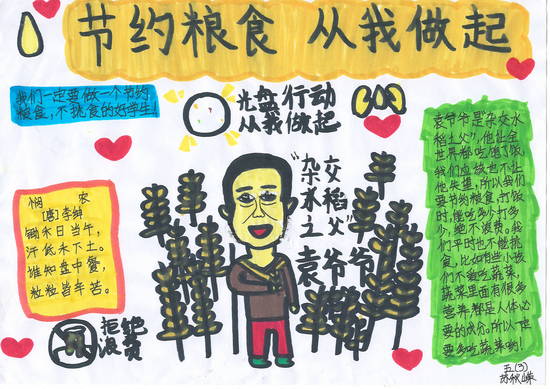 节约粮食 从我做起
我们一定要做一个节约
粮食,不挑食的好学生!
光盘行动
从我做起
悯 农
[唐]李绅
锄禾日当午,
汗滴禾下土。
谁知盘中餐,
粒粒皆辛苦。
拒绝
浪费
“杂交
水稻
之父”
袁爷爷
袁爷爷是“杂交水
稻之父”,他让全
世界都吃饱了饭,
我们应该也不让
他失望,所以我们
要节约粮食,打饭
时,能吃多少打多
少,绝不浪费。我
们平时也不能挑
食,比如有些小孩
们不敢吃蔬菜,
蔬菜里面有很多
营养都是人体必
要的成分。所以一定
要多吃蔬菜哟!
五(3)